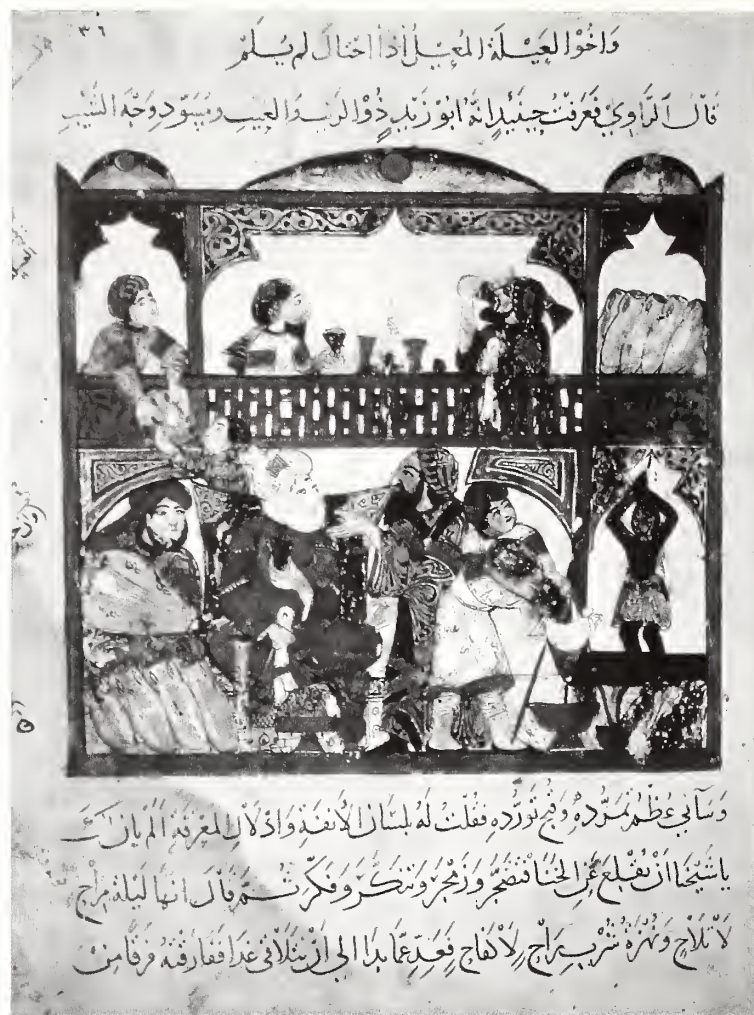 ٣٦
وَاخُوا العَيْلَةِ المُعِيلُ اِذَا احْتَالَ لم يُلَمْ
قَالَ الرَّاوِي فَعَرَفْتُ حِينَئِذٍ اِنَّهُ ابُوْ زَيْدٍ ذُوْ الرَيْبِ وَ العَيْبِ وَمُسَوِّدِ وَجْهِ الشَيْبِ
وَسَآنِي عُظْمُ تَمَرُّدِهِ وَقُبْحُ تَوَرُّدِهِ فَقُلْتُ لَهُ بلِسَانِ الأَنَفَةِ وَاِدْلَالِ المَعْرِفَةِ اَلَمْ يَانِ لَكَ
يَا شَيْخَنَا اَنْ تُقْلِعَ عَنِ الخَنَا فَتَضَجَّرَ وَزَمْجَرَ وَتَنَكَّرَ وَفَكَّرَ ثُمَّ قَالَ اِنهَّا لَيْلَةُ مِرَاحٍ
لَا تَلَاحٍ وَنُهْزَةُ شُرْبِ رَاحٍ لَا كِفَاحٍ فَعَدِّ عَمَّا بَدَا اِلَى اَنْ نَتَلَاقَى غَدَا فَفَارَقْتُهُ فَرَقًا مِنْ